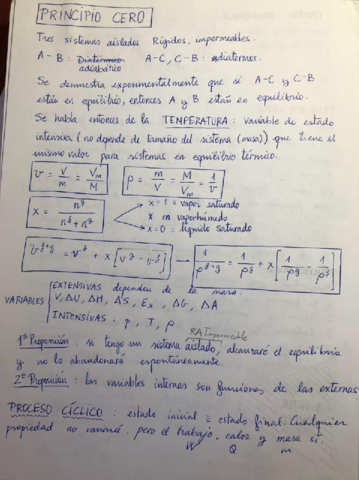 PRINCIPIO CERO
Tres sistemas aislados Rígidos, impermeables.
A-B: Diatérmico A-C, C-B: diatermos.
adiabático
Se demuestra experimentalmente que si A-C y C-B
están en equilibrio, entonces A y B están en equilibrio.
Se habla entonces de la TEMPERATURA: variable de estado
intensiva (no depende de tamaño del sistema (masa)) que tiene el
mismo valor para sistemas en equilibrio térmico.
v = V/m = Vm/M ρ = m/V = M/Vm = 1/v
x = n^g/(n^f + n^g) x=1 = vapor saturado
x en vapor húmedo
x=0 = líquido saturado
v^(f+g) = v^f + x[v^g - v^f] → 1/ρ^(f+g) = 1/ρ^f + x[1/ρ^g - 1/ρ^f]
VARIABLES
EXTENSIVAS dependen de la masa.
V, ΔU, ΔH, ΔS, Ex, ΔG, ΔA
INTENSIVAS: P, T, ρ
RA Impermeable
1ª Proposición: si tengo un sistema aislado, alcanzará el equilibrio
y no lo abandonará espontáneamente.
2ª Proposición: las variables internas son funciones de las externas
PROCESO CÍCLICO: estado inicial ≡ estado final. Cualquier
propiedad no variará. pero el trabajo, calor y masa sí.
W Q m